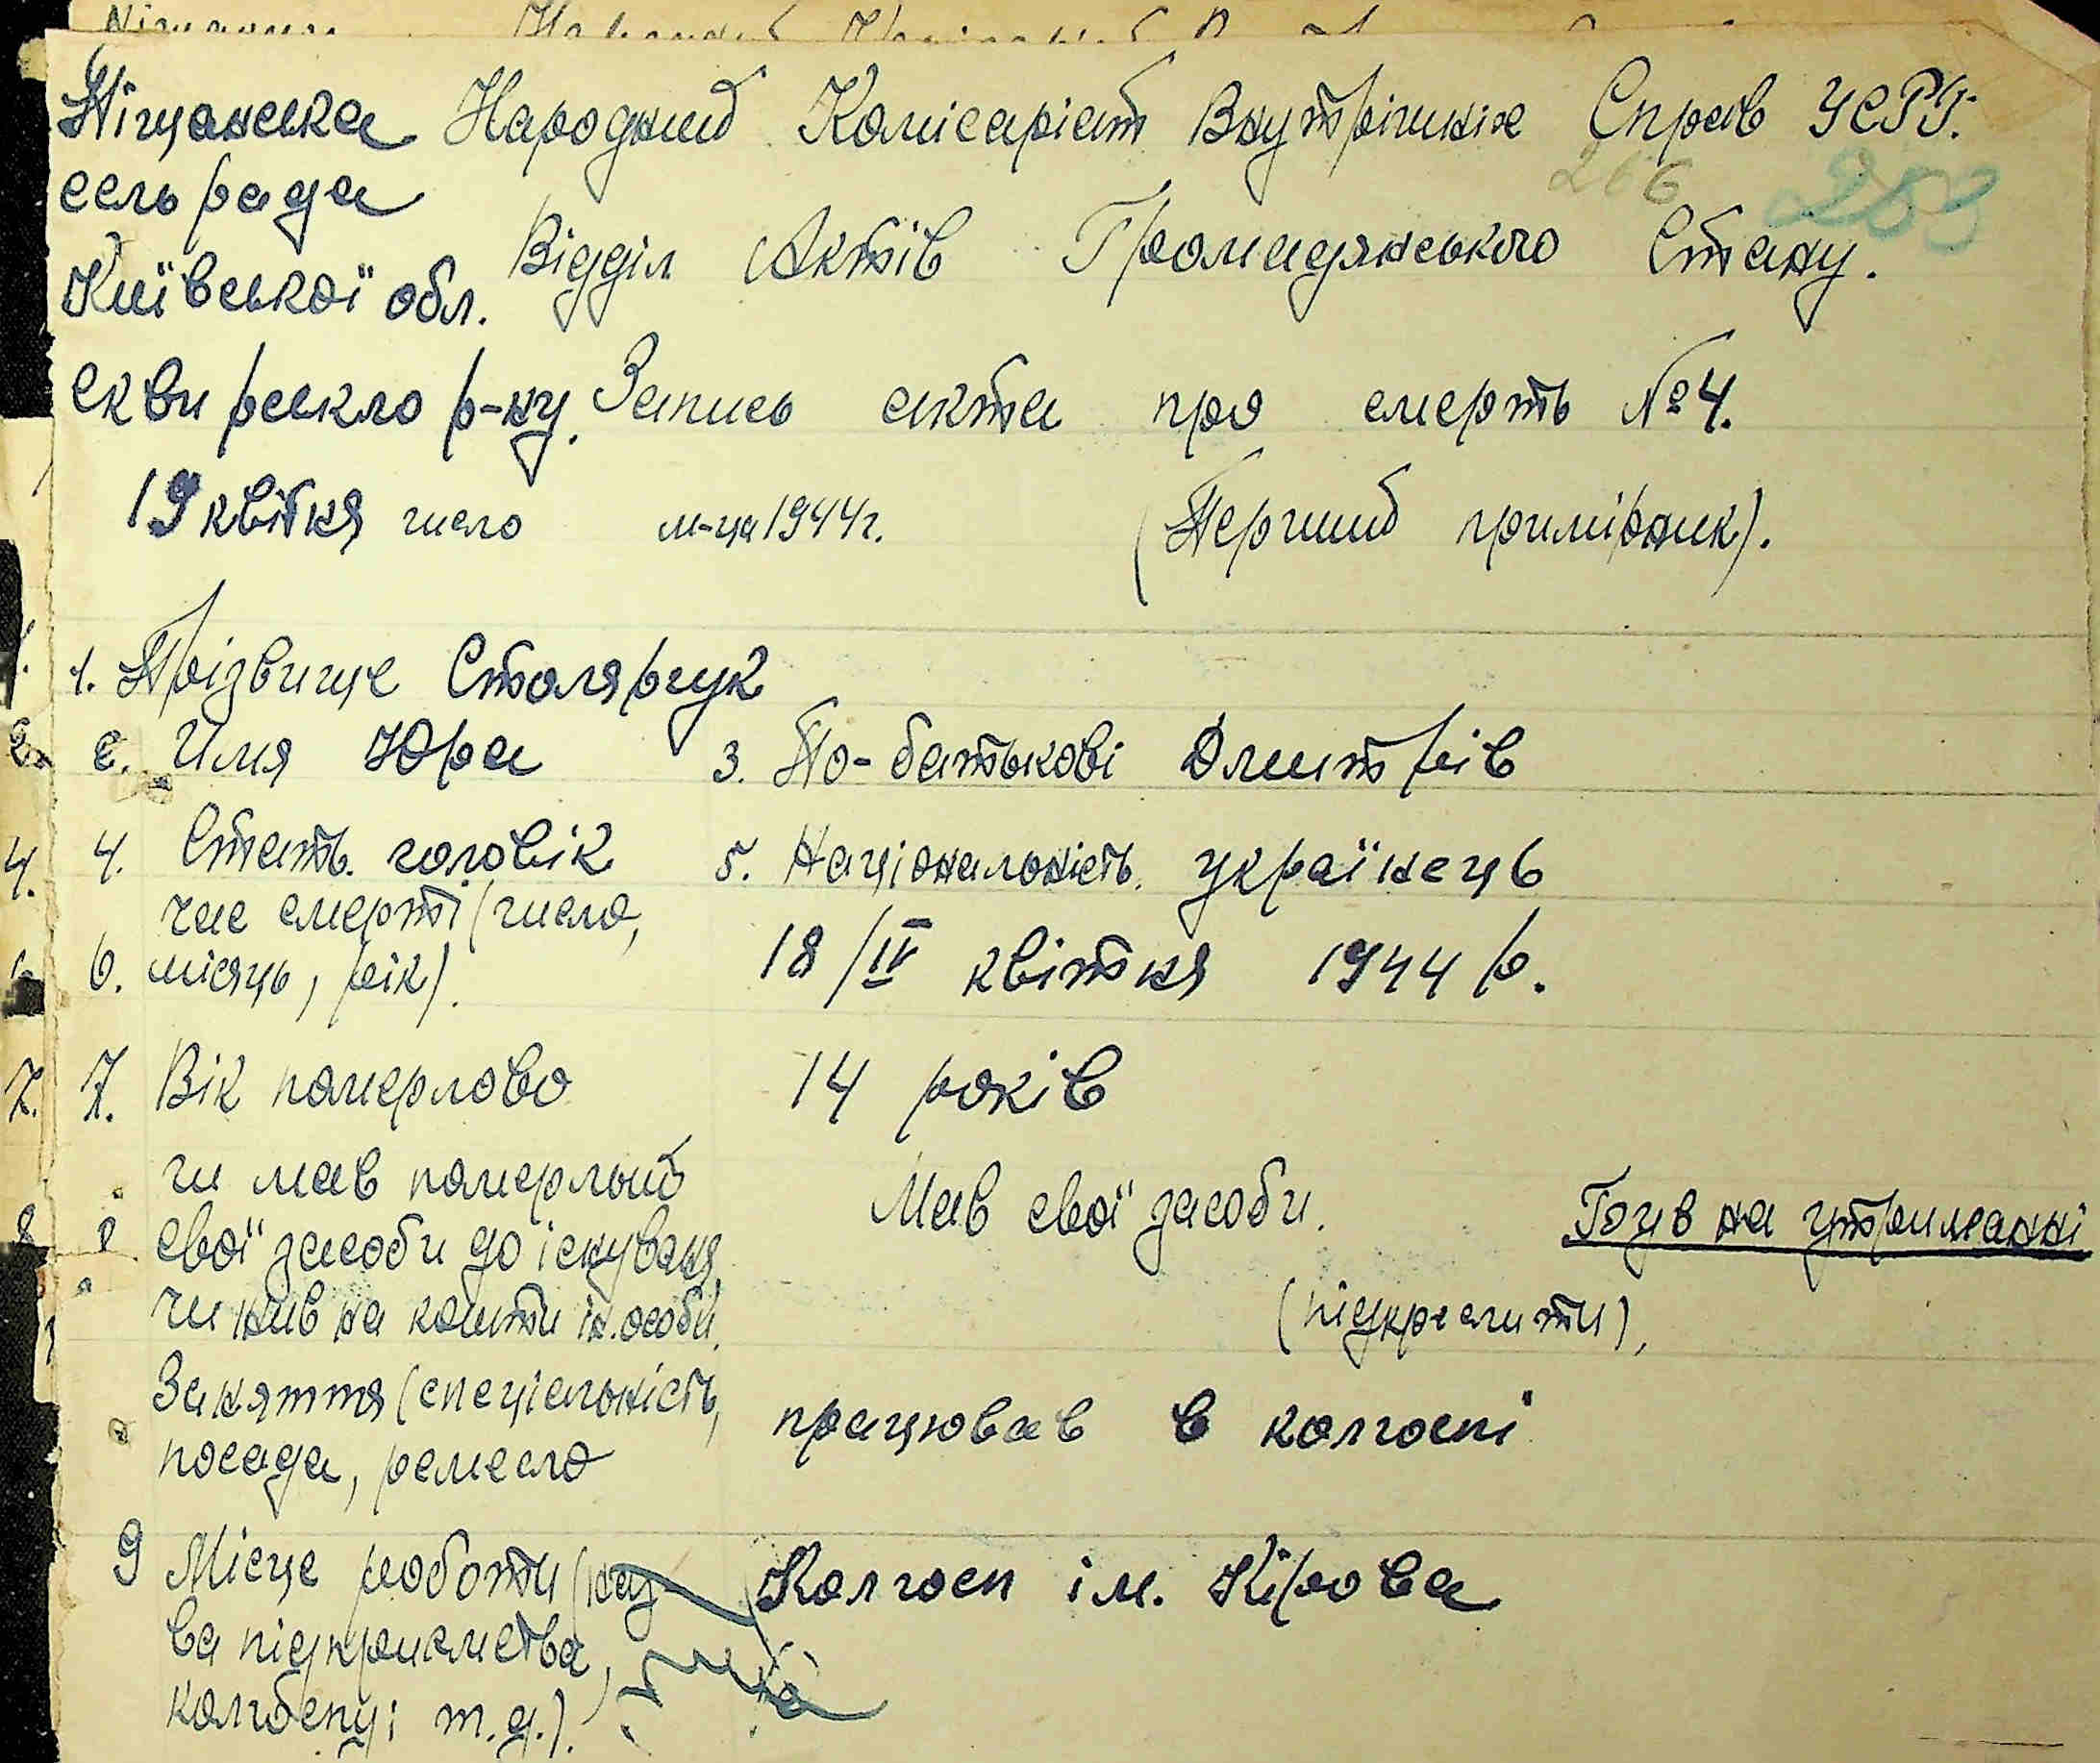 Піщанська Народний Комісаріат Внутрішніх Справ УСРР.
сельрада
266 253
Відділ Актів Громадянського Стану.
Київської обл.
Сквирського р-ну. Запись акта про смерть №4.
19 квітня число м-ця 1944г. (Перший примірник).
1. Прізвище Столярчук
2. Имя Юра 3. По-батькові Дмитрів
4. Стать. чоловік 5. Національність. українець
час смерті (число,
6. місяць, рік). 18/IV квітня 1944 р.
7. 7. Вік померлово 14 років
чи мав померлий
8 8. свої засоби до існування, Мав свої засоби. Був на утриманні
чи жив на кошти ін. особи. (підкреслити),
Заняття (спеціальність,
посада, ремесло працював в колгоспі
9 Місце роботи (наз- Колгосп ім. Кірова
ва підприємства,
колгоспу і т.д.).